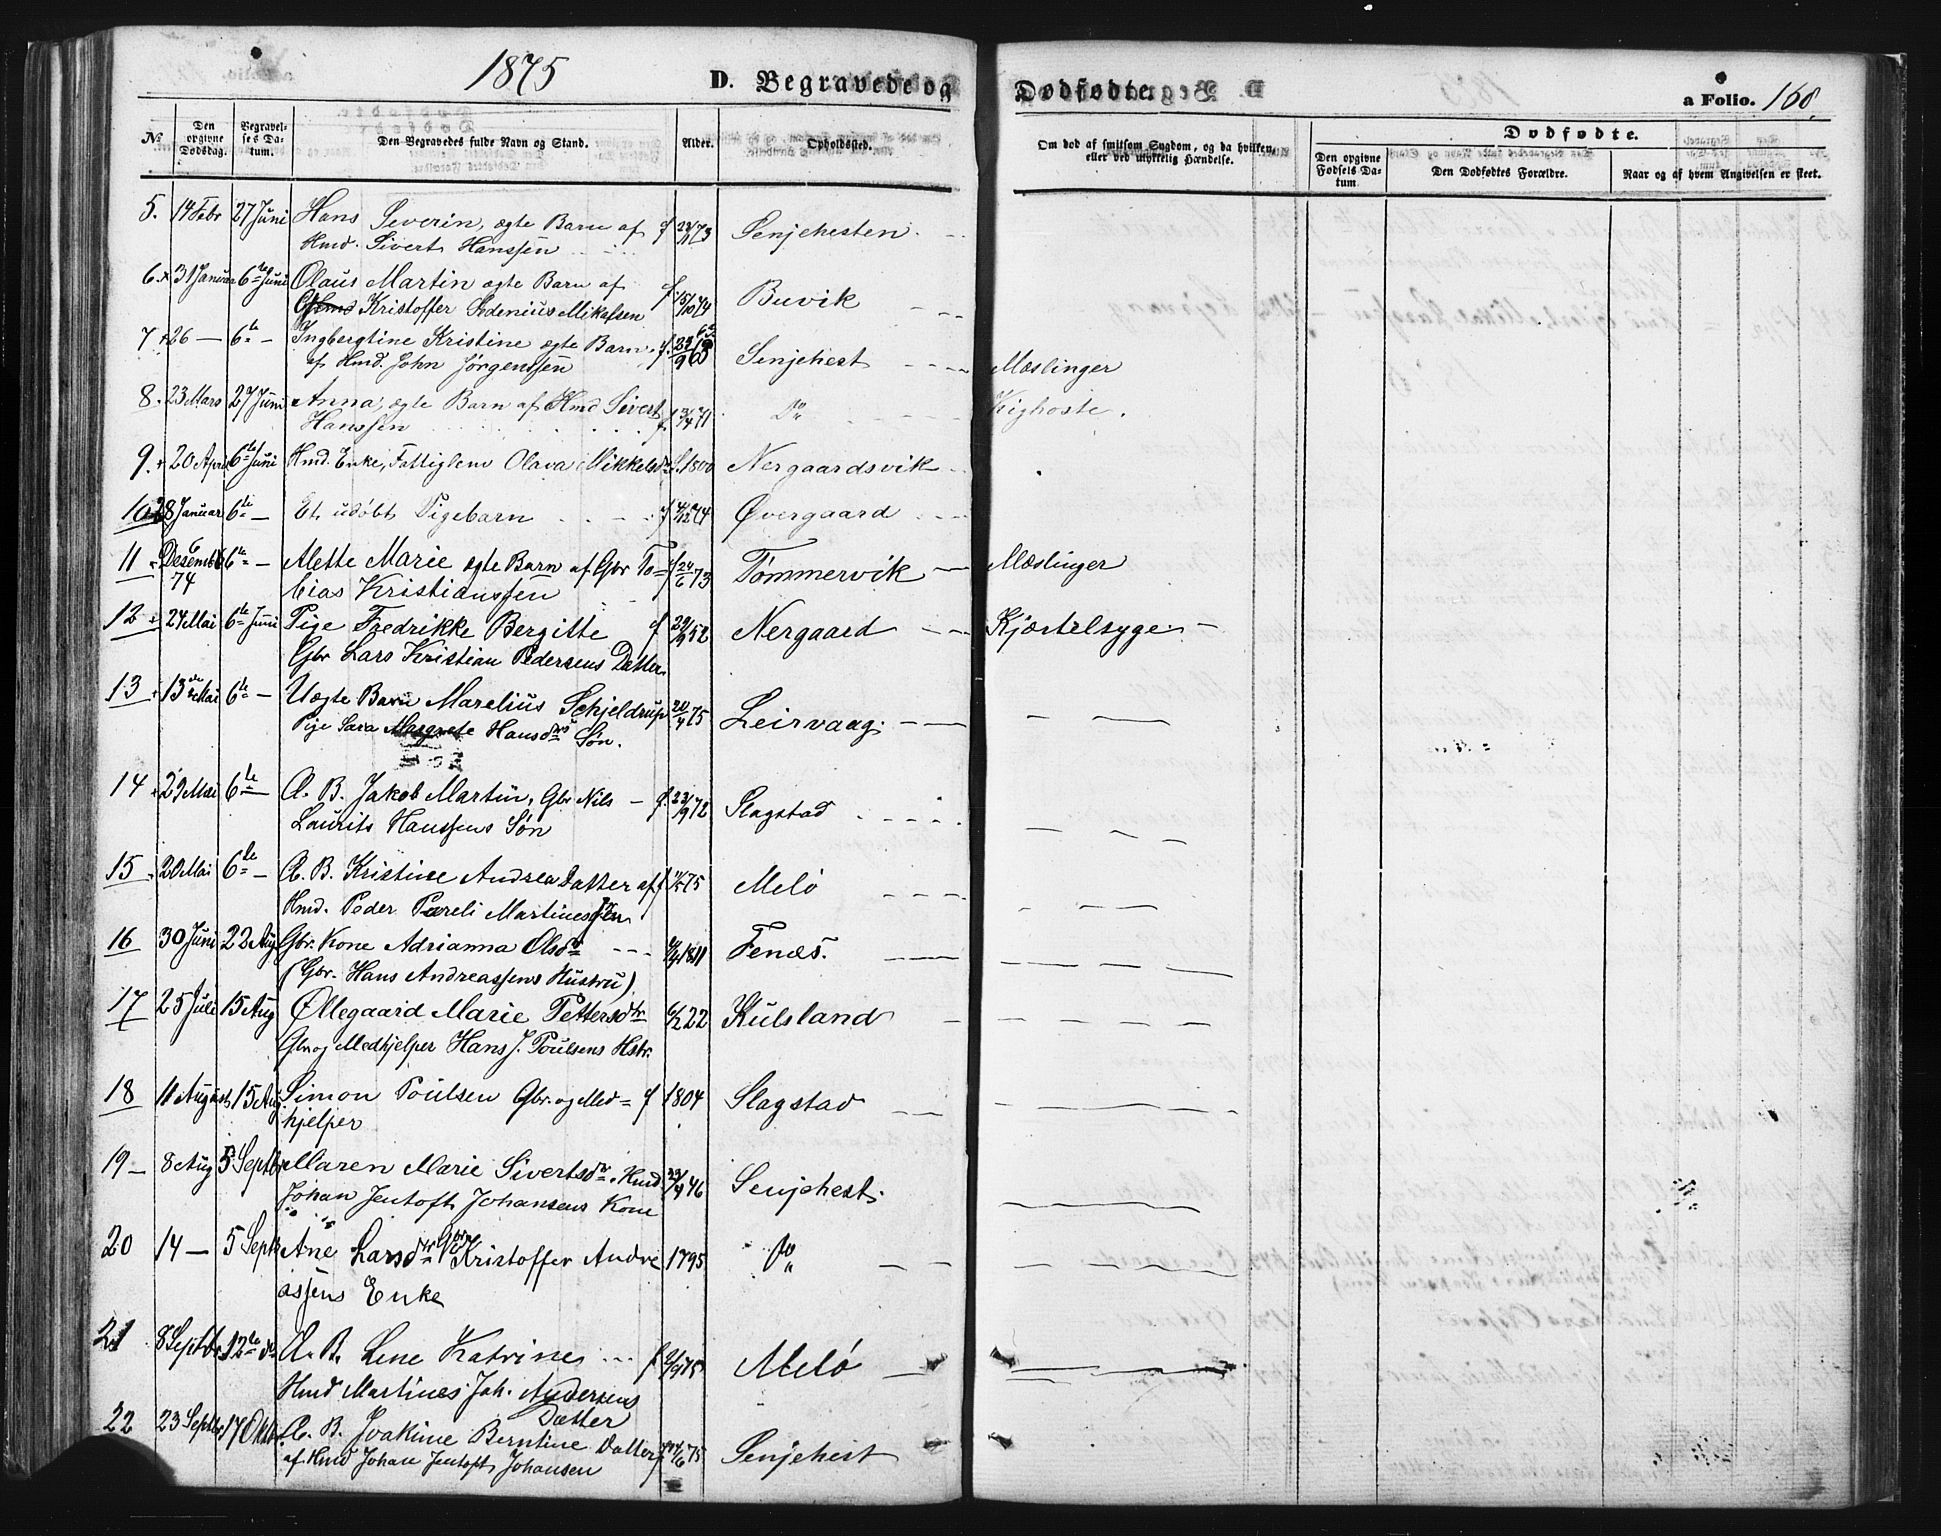 1875
D. Begravede og
Dødfødte.
a Folio. 168.
No
Den opgivne Dødsdag.
Begravelses Datum.
Den Begravedes fulde Navn og Stand.
Alder.
Opholdssted.
Om død af smitsom Sygdom, og da hvilken, eller ved ulykkelig Hændelse.
Dødfødte.
Den opgivne Fødsels Datum
Den Dødfødtes Forældre.
Naar og af hvem Angivelsen er skeet.
5. 14 Febr 27 Juni Hans Severin, ægte Barn af f 73 Senjehesten
Hmd. Sivert Hanssen
6. 31 Januar 6te Juni Olaus Martin ægte Barn af f 15/10 74 Buvik
Kristoffer Mikalsen
7 26 — 6te — Ingbergtine Kristine ægte Barn f. Senjehest Mæslinger
af Hmd. John Jørgenssen
8. 23 Mars 27 Juni Anna, ægte Barn af Hmd Sivert f. 71 Do Kighoste.
Hanssen
9. 20 April 6te Juni Hmd. Enke, Fattiglem Olava Mikkelsdr f. 1800 Nergaardsvik
10 28 Januar 6te — Et udøbt Pigebarn f 12 74 Øvergaard
11 6 Desember 74 6te — Alette Marie ægte Barn af Gbr To= f 24/6 73 Tømmervik Mæslinger
bias Kristianssen
12 24 Mai 6te Juni Pige Fredrikke Bergitte f 52 Nergaard Kjærtelsyge
Gbr Lars Kristian Pedersens Datter
13 13de Mai 6te — Uægte Barn Marelius Schjeldrup 20/4 75 Leirvaag
Pige Sara Margrete Hansdrs Søn.
14 29 Mai 6te Æ. B. Jakob Martin, Gbr Nils f. 23/9 72 Slagstad
Laurits Hanssens Søn
15 20 Mai 6te — Æ. B. Kristine Andrea Datter af f 75 Melø
Hmd. Peder Pareli Martinessen
16 30 Juni 22 Aug Gbr. Kone Adrianna Olsdr 1811 Fenæs.
(Gbr. Hans Andreassens Hustru).
17 25 Juli 15 Aug Øllegaard Marie Pettersdtr 22 Kulsland
Gbr og Medhjelper Hans J. Poulsens Hstr.
18 11 August 15 Aug. Simon Poulsen Gbr. og Med= f 1804 Slagstad
hjelper
19 — 8 Aug 5 Septbr Maren Marie Sivertsdr. Hmd. 23/4 46 Senjehest.
Johan Jentoft Johansens Kone
20 14 — 5 Septr Ane Larsdtr Gbr Kristoffer Andre 1795 Do
assens Enke
21 8 Septbr 12te do Æ. B. Line Katrine f 75 Melø
Hmd Martines Joh. Andersens
Datter
22 23 Septbr 17 Oktbr Æ. B. Joakime Berntine Datter f 6 75 Senjehest
af Hmd Johan Jentoft Johansen